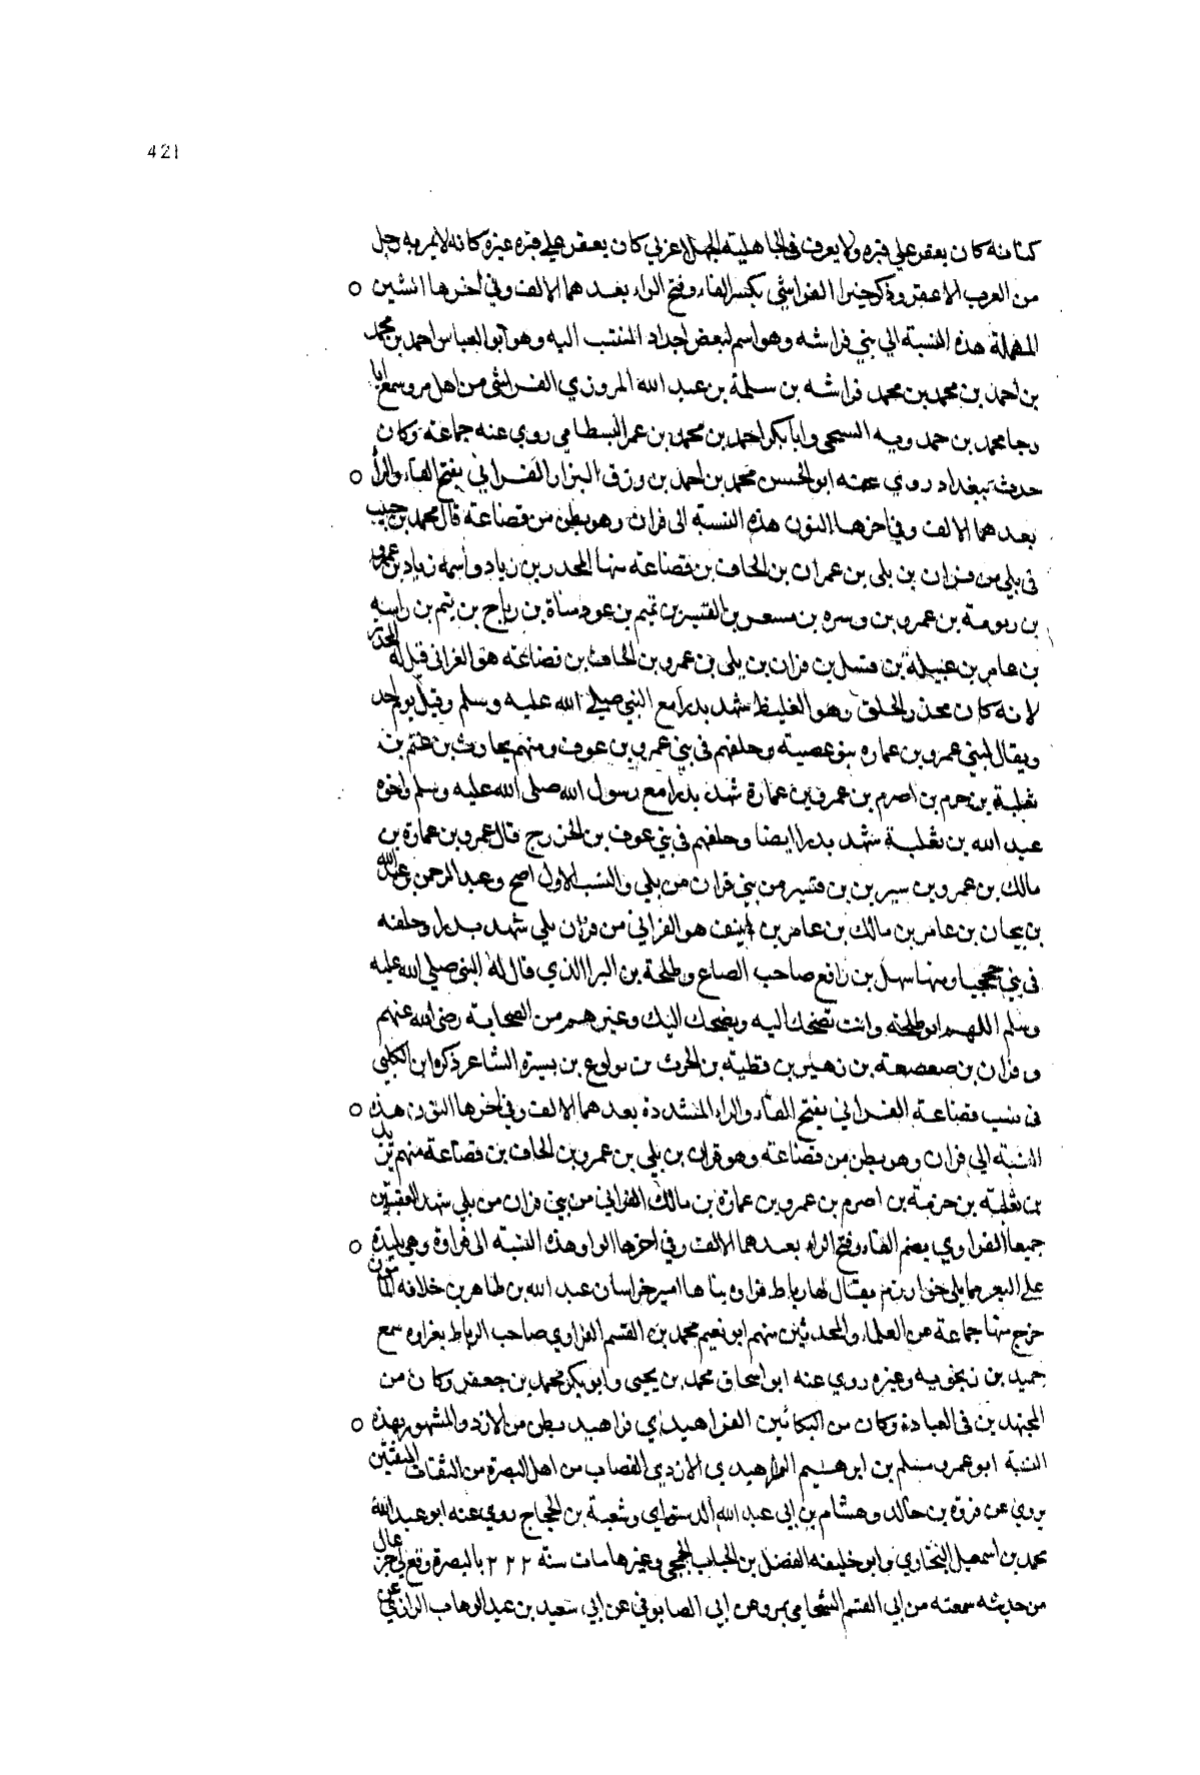 421
كنانة كان يعقر علي قبره ولا يعرف في الجاهلية الجهلا عربي كان يعقر علي قبره غيره كانه لا يمر به رجل
من العرب الا عقر وذكر خبرا الفراشي بكسر الفاء وفتح الراء بعدهما الالف وفي اخرها الشين
المهملة هذه النسبة الي بني فراشه وهو اسم لبعض اجداد المنتسب اليه وهو ابو العباس احمد بن محمد
بن احمد بن محمد بن محمد فراشه بن سلمة بن عبد الله المروزي الفراشي من اهل مرو سمع ابا
رجا محمد بن حمدويه السنجي وابا بكر احمد بن محمد بن عمر البسطامي روي عنه جماعة وكان
حدث ببغداد روي عنه ابو الحسن محمد بن احمد بن رزق البزار الفراني بفتح الفاء والرا
بعدهما الالف وفي اخرها النون هذه النسبة الى فران وهو بطن من قضاعة قال محمد بن حبيب
في بلي من فران بن بلي بن عمران بن الحاف بن قضاعة منها المجدر بن زياد واسمه زياد بن عمرو
بن عمرو بن مسعر بن القشير بن تميم بن عوذ مناة بن رباح بن يتم بن راسه
بن عامر بن عبيلة بن قسيل بن فران بن بلى بن عمرو بن الحاف بن قضاعة هو الفرانى قيل له المجدر
لانه كان مجدر الخلق وهو الغليظ شهد بدرا مع النبي صلي الله عليه وسلم وقتل يوم احد
ويقال لبني عمرو بن عماره بنو عصية وحلفهم في بني عمرو بن عوف ومنهم بحاث بن
ثعلبة بن خزم بن اصرم بن عمرو بن عمارة شهد بدرا مع رسول الله صلى الله عليه وسلم واخوه
عبد الله بن ثعلبة شهد بدرا ايضا وحلفهم في بني عوف بن الخزرج قال عمرو بن عمارة بن
مالك بن عمرو بن بن قشير من بني فران من بلي والنسب الاول اصح وعبد الرحمن بن عبد الله
بن بيحان بن عامر بن مالك بن عامر بن انيف هو الفراني من فران بلي شهد بدرا وحلفه
في بني جحجبا ومنها سهل بن رافع صاحب الصاع وطلحة بن البرا الذي قال له النبي صلي الله عليه
وسلم اللهم الق طلحة وانت تضحك اليه ويضحك اليك وغيرهم من الصحابة رضي الله عنهم
و فران بن صعصعة بن زهير بن قطية بن الحرث بن بن بسيرة الشاعر ذكره ابن الكلبي
في نسب قضاعة الفراني بفتح الفاء والراء المشددة بعدهما الالف وفي اخرها النون هذه
النسبة الي فران وهو بطن من قضاعة وهو فران بن بلي بن عمرو بن الحاف بن قضاعة منهم يزيد
بن ثعلبة بن خزمة بن اصرم بن عمرو بن عمارة بن مالك الفراني من بني فران من بلي شهد العقبتين
جميعا الفراوي بضم الفاء وفتح الراء بعدهما الالف وفي اخرها الواو هذه النسبة الى فراوة وهي بليدة
علي الثغر مما يلي خوارزم يقال لها رباط فراوه بناها امير خراسان عبد الله بن طاهر بن خلافه المامون
خرج منها جماعة من العلماء والمحدثين منهم ابو نعيم محمد بن القسم الفراوي صاحب الرباط بفراوه سمع
حميد بن زنجويه وغيره روي عنه ابو اسحاق محمد بن يحيى وابو بكر محمد بن جعفر وكان من
المجتهدين في العبادة وكان من البكائين الفراهيدي فراهيد بطن من الازد والمشهور بهذه
النسبة ابو عمرو مسلم بن ابرهيم الفراهيدي الازدي القصاب من اهل البصرة من الثقات المتقنين
يروي عن قره بن خالد وهشام بن ابي عبد الله الدستوايي وشعبة بن الحجاج روي عنه ابو عبد الله
محمد بن اسمعيل البخاري وابو خليفه الفضل بن الحباب الجمحي وغيرهما مات سنة ٢٢٢ بالبصرة وقع لي جزء عال
من حديثه سمعته من ابي القسم الشحامي بمرو عن ابي الصابوني عن ابي سعيد بن عبد الوهاب الرازي عن